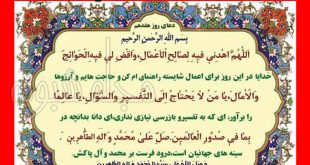 دعای روز هفدهم
بِسْمِ اللَّهِ الرَّحْمنِ الرَّحیم
اَللّهُمَّ اهْدِنی فیهِ لِصالِحِ الْأَعْمالِ، وَاقْضِ لی فیهِ الْحَوائِجَ
خدایا در این روز برای اعمال شایسته راهنمای ام کن و حاجت هایم و آرزوها
وَالْأمالَ، یا مَنْ لا یَحْتاجُ اِلَی التَّفْسیرِ وَالسُّؤالِ، یا عالِماً
را برآور، ای که به تفسیر و بازرسی نیازی نداری، ای دانا بدانچه در
بِما فی صُدُورِ الْعالَمینَ، صَلِّ عَلی مُحَمَّدٍ وَ آلِهِ الطّاهِرینَ
سینه های جهانیان است درود فرست بر محمد و آل پاکش